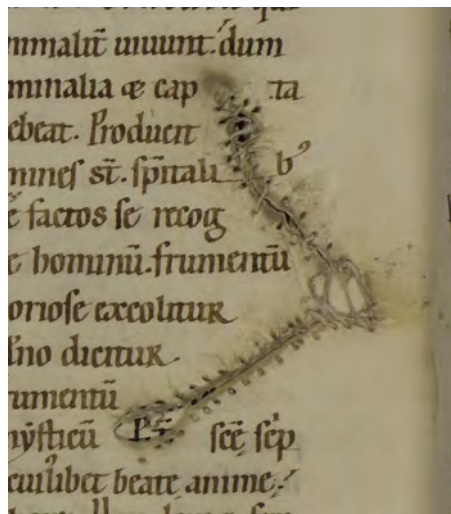 nimaliū uiuunt. dum
minalia & cap ta
ebeat. Producit
mines st̄. sp̄itali b⁹
ē factos se recog
e hominū. frumentū
oriose excolitur
dicitur
rumentū
ẏsticū sc̄e
cuilibet beate anime,